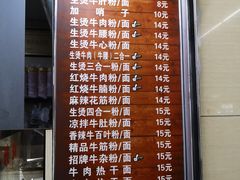 生烫牛肝粉/面 8元
加哨子 10元
生烫牛肉粉/面 14元
生烫牛腰粉/面 14元
生烫牛心粉/面 14元
生烫牛肉(牛腰)二合一 14元
生烫三合一粉/面 14元
红烧牛肉粉/面 14元
红烧牛腩粉/面 14元
麻辣花筋粉/面 14元
生烫四合一粉/面 15元
凉拌牛肚粉/面 15元
香辣牛百叶粉/面 15元
精品牛筋粉/面 15元
招牌牛杂粉/面 15元
牛肉热干面 15元